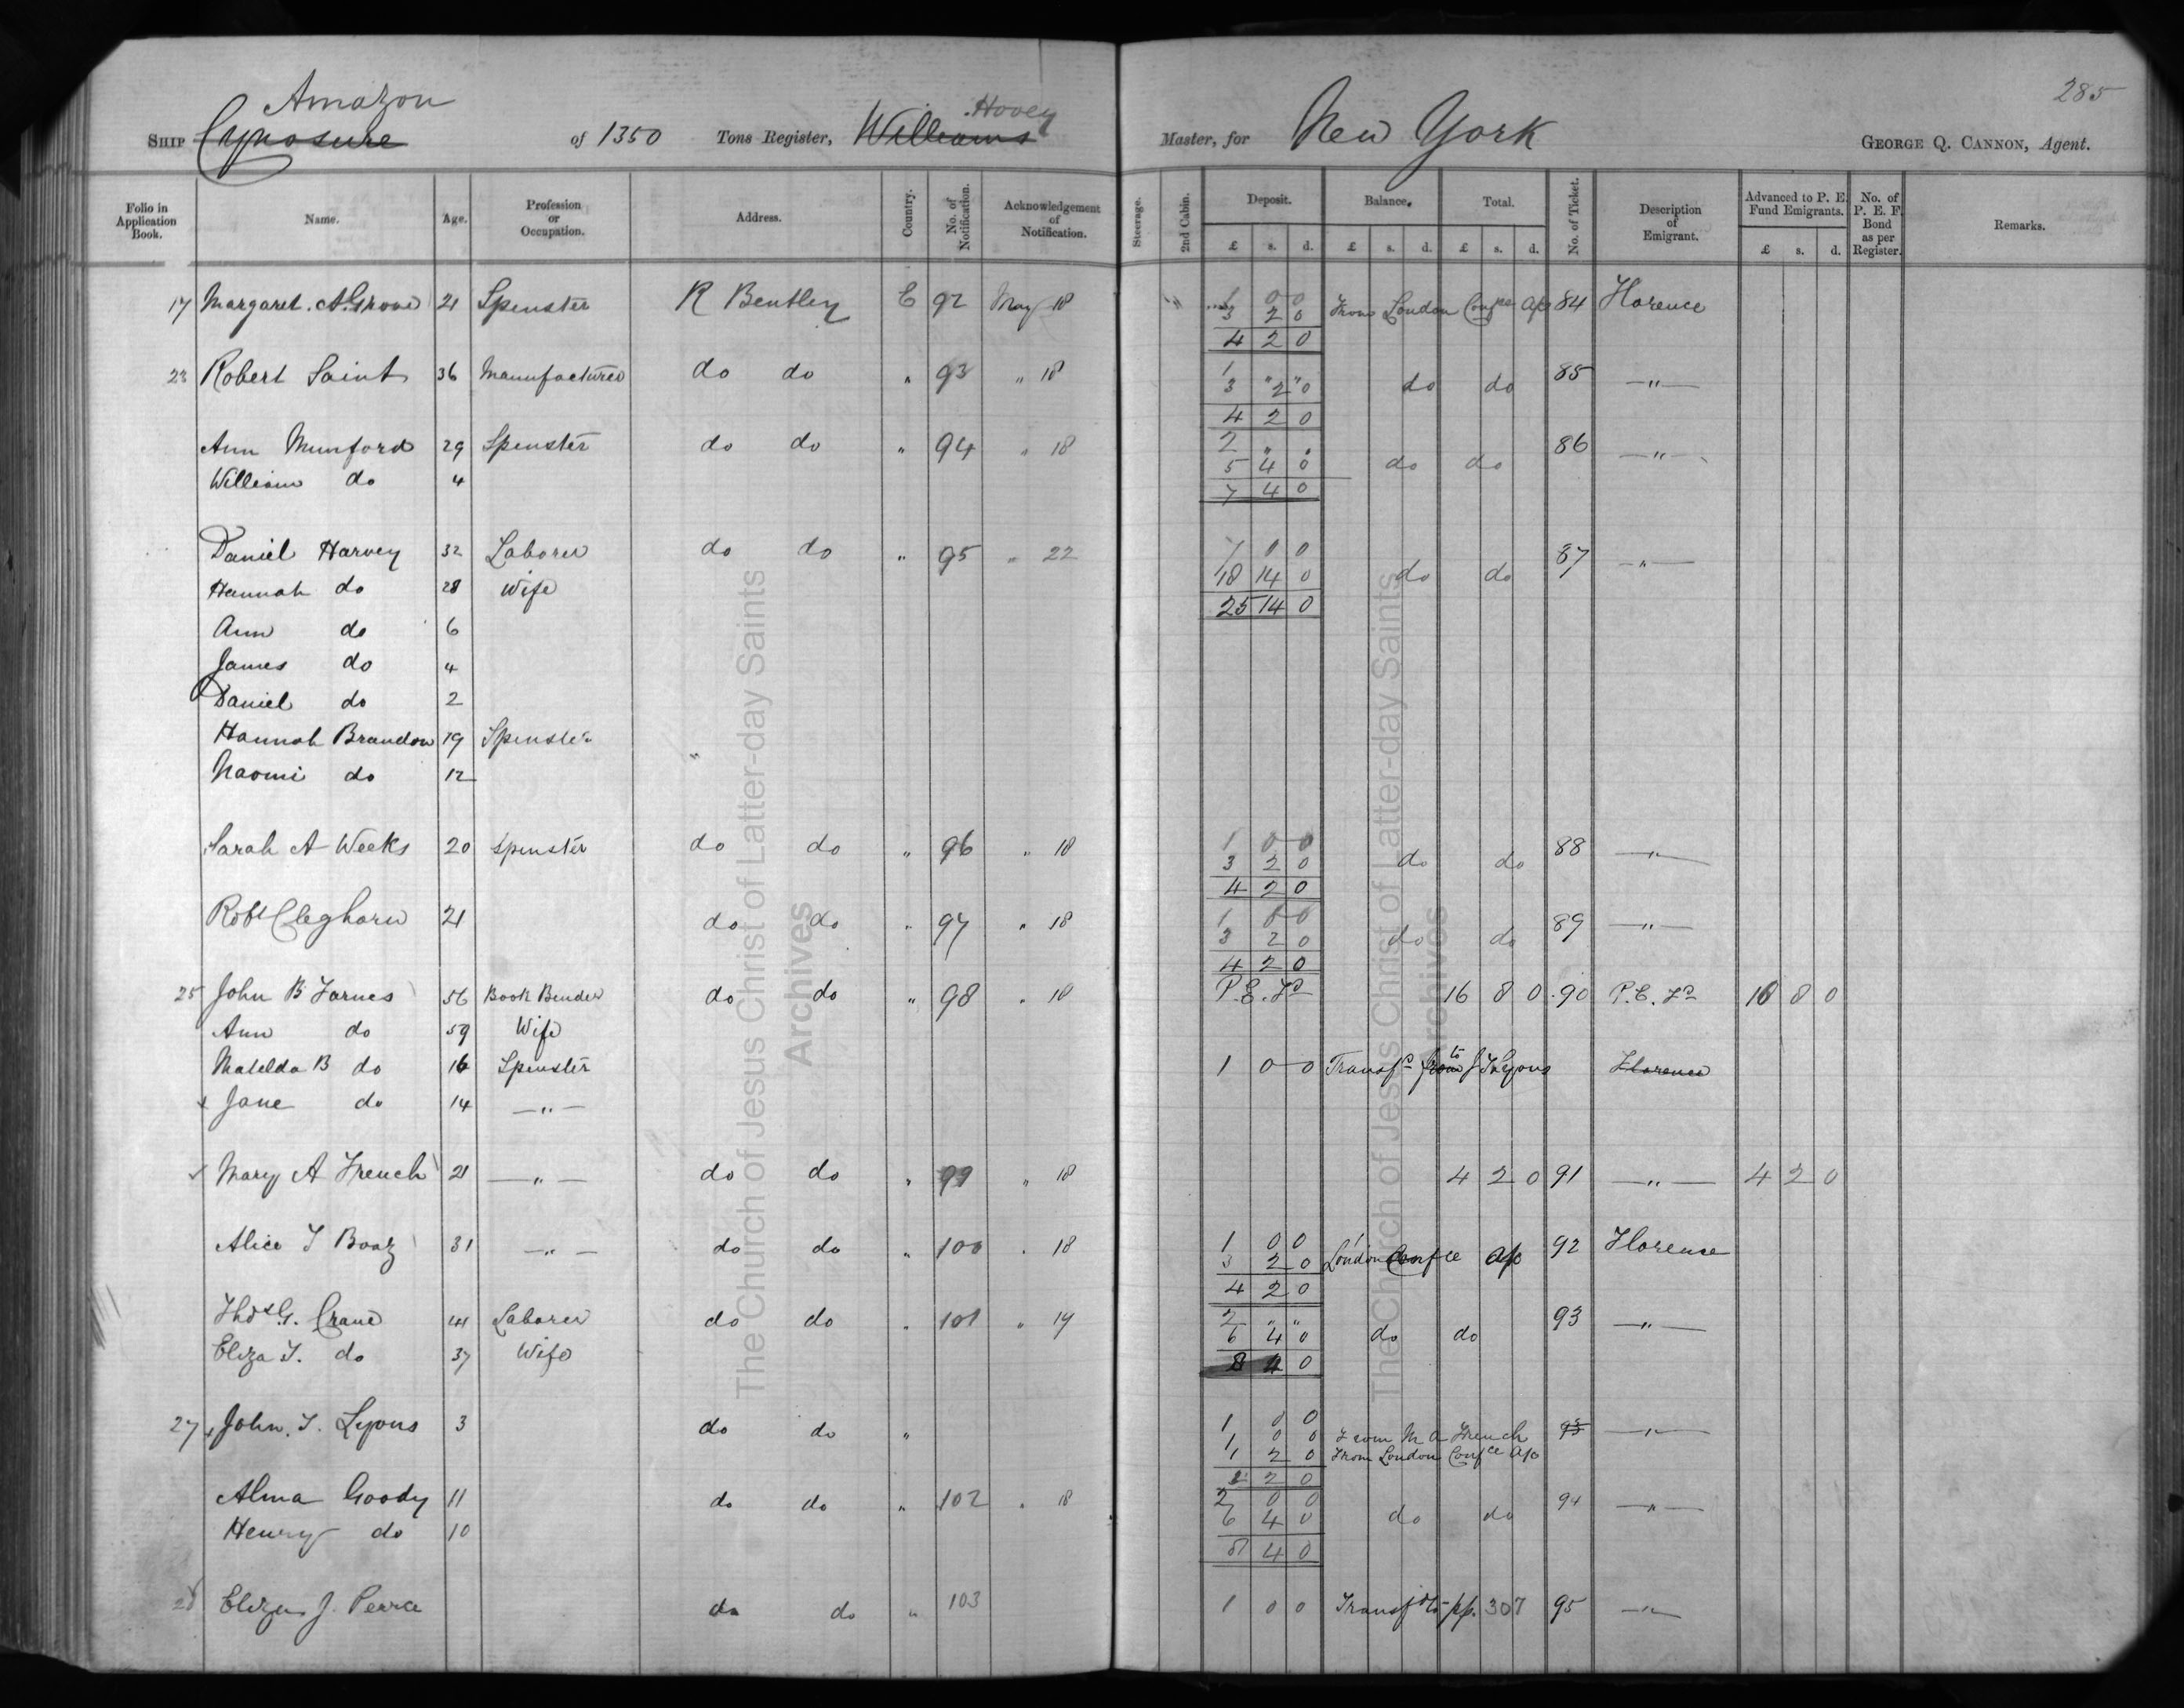 285
Amazon Hovey
SHIP Cynosure of 1350 Tons Register, Williams Master, for New York GEORGE Q. CANNON, Agent.
Folio in Application Book. Name. Age. Profession or Occupation. Address. Country. No. of Notification. Acknowledgement of Notification. Steerage. 2nd Cabin. Deposit. Balance. Total. No. of Ticket. Description of Emigrant. Advanced to P. E. Fund Emigrants. No. of P. E. F. Bond as per Register. Remarks.
£ s. d. £ s. d. £ s. d. £ s. d.
17 Margaret. A. Grove 21 Spenster R Bentley E 92 May 18 1 0 0 84 Florence
3 2 0 From London Confce a/c
4 2 0
23 Robert Saint 36 Manufacturer do do " 93 " 18 1 " " 85 — " —
3 2 0 do do
4 2 0
Ann Munford 29 Spenster do do " 94 " 18 2 " " 86 — " —
5 4 0 do do
William do 4 7 4 0
Daniel Harvey 32 Laborer do do " 95 " 22 7 0 0 87 — " —
18 14 0 do do
Hannah do 28 Wife 25 14 0
Ann do 6
James do 4
Daniel do 2
Hannah Brandon 19 Spenster "
Naomi do 12
Sarah A Weeks 20 Spenster do do " 96 " 18 1 0 0 88 — " —
3 2 0 do do
4 2 0
Robt Cleghorn 21 do do " 97 " 18 1 0 0 89 — " —
3 2 0 do do
4 2 0
25 John B Farnes 56 Book Bender do do " 98 " 18 P.E. Fd 16 8 0 90 P.E. Fd 16 8 0
Ann do 59 Wife
Matelda B do 16 Spenster 1 0 0 Transfd from to J T Lyons Florence
x Jane do 14 — " —
Mary A French 21 — " — do do " 99 " 18 4 2 0 91 — " — 4 2 0
Alice T Boaz 31 — " — do do " 100 " 18 1 0 0 92 Florence
3 2 0 London Confce a/c
4 2 0
Thos G. Crane 44 Laborer do do " 101 " 19 2 " " 93 — " —
6 4 0 do do
Eliza T. do 37 Wife 8 4 0
27 x John. T. Lyons 3 do do " 1 0 0 — " —
1 0 0 From M A French
1 2 0 From London Confce a/c
2 0
Alma Goody 11 do do " 102 " 18 2 0 0 94 — " —
6 4 0 do do
Henry do 10 8 4 0
28 Eliza J. do do " 103 1 0 0 Transfd to pp. 307 95 — " —
The Church of Jesus Christ of Latter-day Saints
Archives
The Church of Jesus Christ of Latter-day Saints
Archives